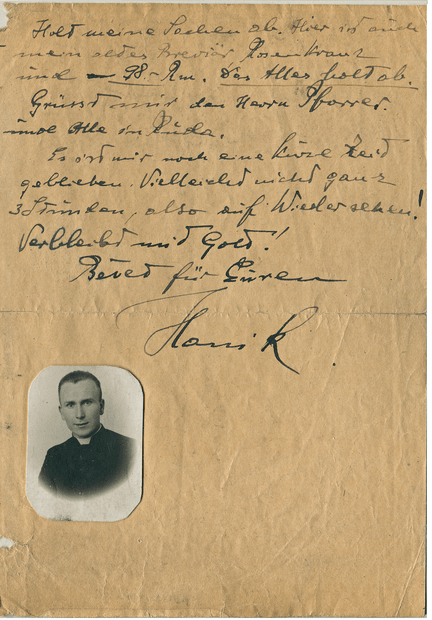 Holt meine Sachen ab. Hier ist auch
mein altes Brevier, Rosenkranz
und – 98.- Rm. Das Alles holt ab.
Grüsst mir den Herrn Pfarrer.
und Alle in Ruda.
Es ist mir noch eine kurze Zeit
geblieben. Vielleicht nicht ganz
3 Stunden, also auf Wiedersehen!
Verbleibt mit Gott!
Betet für Euren
Hanik.